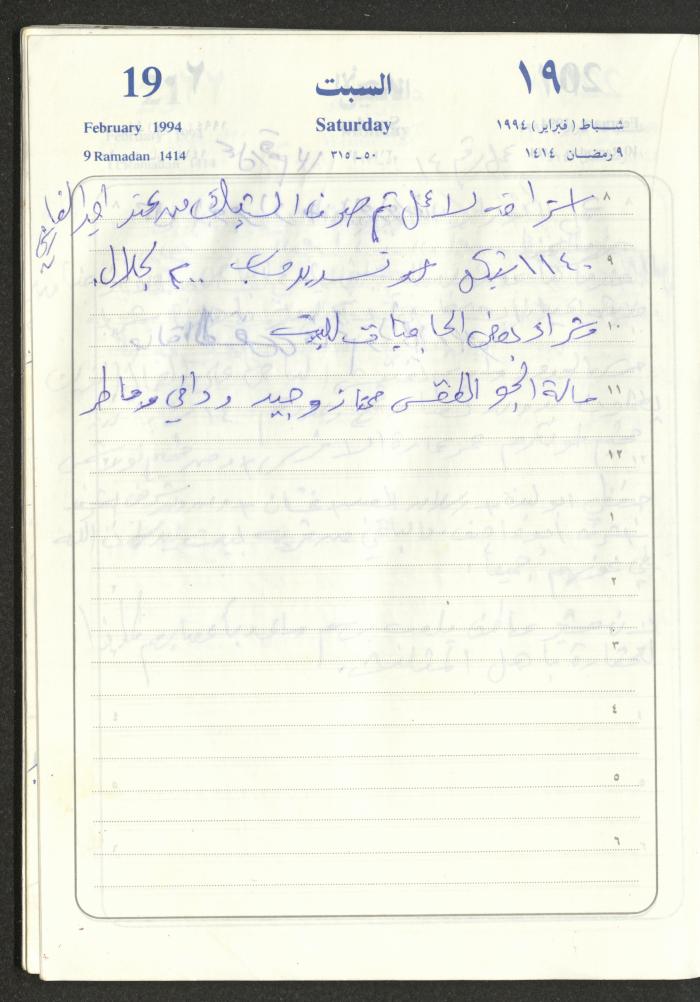 19
السبت
١٩
February 1994
Saturday
شباط (فبراير) ١٩٩٤
9 Ramadan 1414
٥٠ ـ ٣١٥
٩ رمضان ١٤١٤
٨
استراحة لا عمل تم صرف الشيك من عند
٩
١١٤٠ شيكل تسديد حساب ٢٠٠
١٠
وشراء بعض الحاجيات للبيت
١١
حالة الجو الطقس ممتاز وجيد ودافي وماطر
١٢
١
٢
٣
٤
٥
٦